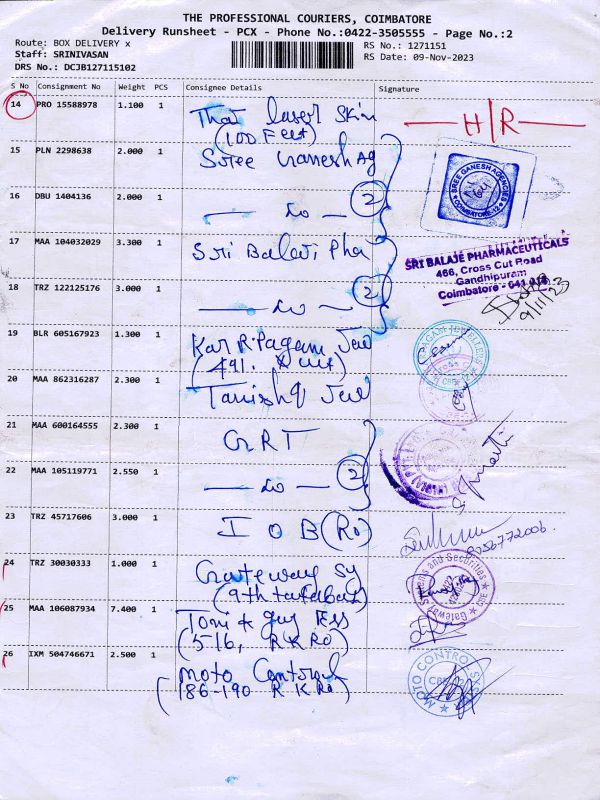 THE PROFESSIONAL COURIERS, COIMBATORE
Delivery Runsheet - PCX - Phone No.:0422-3505555 - Page No.:2
Route: BOX DELIVERY x
Staff: SRINIVASAN
DRS No.: DCJB127115102
RS No.: 1271151
RS Date: 09-Nov-2023
S No Consignment No Weight PCS Consignee Details Signature
14 PRO 15588978 1.100 1 Thai laser Skin
(100 Feet)
H/R
15 PLN 2298638 2.000 1 Sree Ganesh Ag
SREE GANESH AGENCIES
COIMBATORE-12
16 DBU 1404136 2.000 1 — do — 2
17 MAA 104032029 3.300 1 Sri Balaji Pha
SRI BALAJE PHARMACEUTICALS
466, Cross Cut Road
Gandhipuram
Coimbatore - 641 012
18 TRZ 122125176 3.000 1 — do — 2
9/11/23
19 BLR 605167923 1.300 1 Kar R. Pagam Jew
(491.
20 MAA 862316287 2.300 1 Tanishq Jew
21 MAA 600164555 2.300 1 GRT
22 MAA 105119771 2.550 1 — do — 2
23 TRZ 45717606 3.000 1 IOB (Ro)
24 TRZ 30030333 1.000 1 Gateway Sy
(9th
Gateway Systems and Securities
25 MAA 106087934 7.400 1 Toni & guy Ess
(516, R K Ro)
26 IXM 504746671 2.500 1 Moto Control
(186-190 R K Ro)
MOTO CONTROL SYS